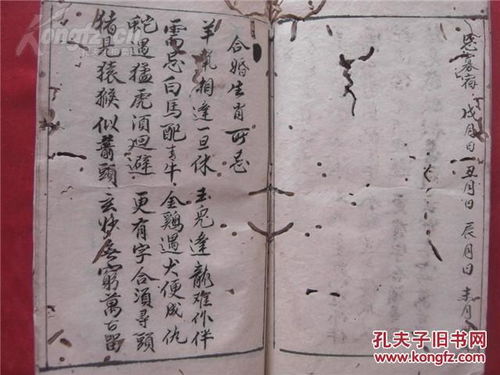 寡宿 戌月日 丑月日 辰月日 未月
合婚生肖所忌
羊鼠相逢一旦休 玉兔逢龍难作伴
需忌白馬配青牛 金鷄遇犬便成仇
蛇遇猛虎須迴避 更有字合須尋頭
猪见猿猴似箭頭 玄妙無窮萬古留
孔夫子旧书网
www.kongfz.com